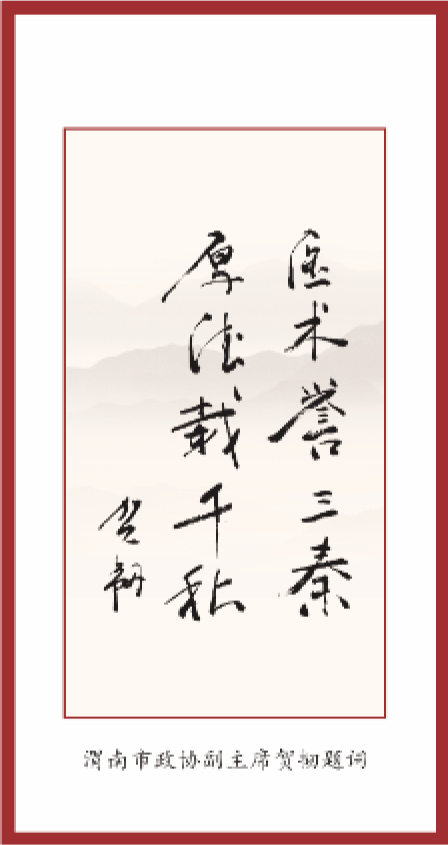 医术誉三秦
厚德载千秋
贺韧
渭南市政协副主席贺韧题词